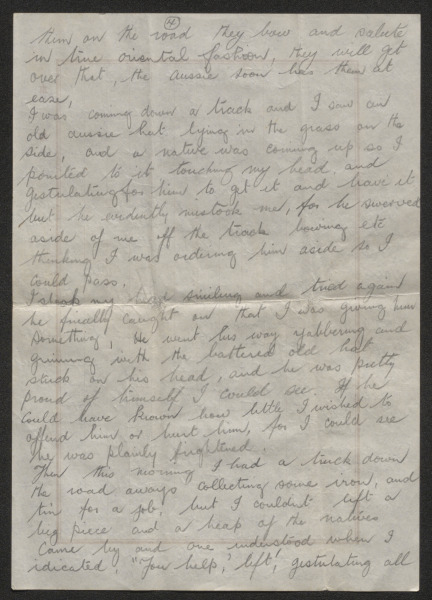 (4)
them on the road they bow and salute
in true oriental fashion, they will get
over that, the aussie soon has them at
ease,
I was coming down a track and I saw an
old aussie hat lying in the grass on the
side, and a native was coming up so I
pointed to it touching my head and
gestulating for him to get it and have it
but he evidently mustook me, for he swerved
aside of me off the track bowing etc
thinking I was ordering him aside so I
could pass.
I shook my head smiling and tried again
he finally caught on that I was giving him
something, He went his way yabbering and
grinning with the battered old hat
stuck on his head, and he was pretty
proud of himself I could see. If he
could have known how little I wished to
offend him or hurt him, for I could see
he was plainly frightened.
Then this morning I had a truck down
the road aways collecting some iron, and
tin for a job, but I couldn't lift a
big piece and a heap of the natives
came by and one understood when I
idicated, "You help, lift", gestulating all